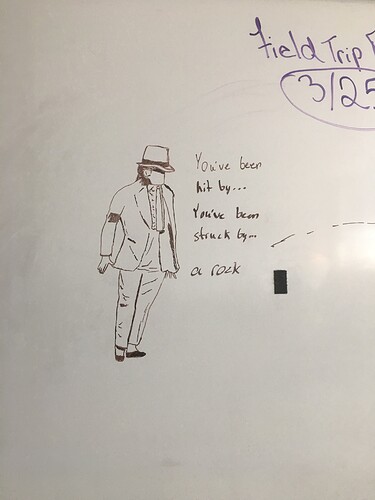 Field Trip
3/25
You've been
hit by...
You've been
struck by...
a rock